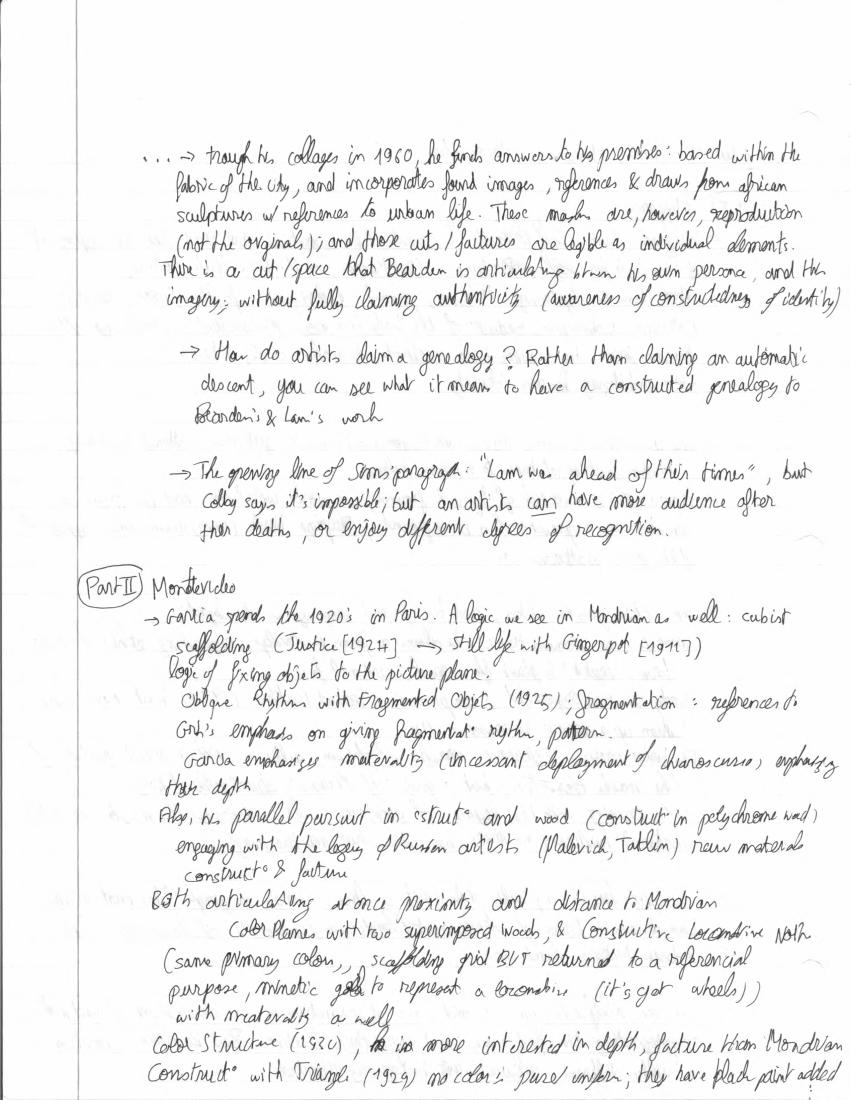 ... → trough his collages in 1960, he finds answers to his premises: based within the
fabric of the city, and incorporates found images, references & draws from african
sculptures w/ references to urban life. These masks are, however, reproduction
(not the originals); and those cuts / factures are legible as individual elements.
There is a cut/space that Bearden is articulating btwn his own persona, and this
imagery; without fully claiming authenticity (awareness of constructedness of identity)
→ How do artists claim a genealogy? Rather than claiming an automatic
descent, you can see what it means to have a constructed genealogy to
Bearden's & Lam's work
→ The opening line of Sims' paragraph: "Lam was ahead of their times", but
Colby says it's impossible; but an artists can have more audience after
their deaths, or enjoy different degrees of recognition.
Part II Montevideo
→ Garcia spends the 1920's in Paris. A logic we see in Mondrian as well: cubist
scaffolding (Justice [1924] → Still life with Gingerpot [1911])
logic of fixing objets to the picture plane.
Oblique Rhythms with Fragmented Objets (1925); fragmentation: references to
Gris's emphasis on giving fragmentat° rhythm, pattern.
Garcia emphasizes materality (incessant deployment of chiaroscuro, emphasizing
their depth
Also, his parallel pursuit in "struct" and wood (construct° in polychrome wood)
engaging with the legacy of Russian artists (Malevich, Tatlin) new materials
construct° & facture
Both articulating at once proximity and distance to Mondrian
Color Planes with two superimposed Woods, & Constructive Locomotive North
(same primary colors, scaffolding grid BUT returned to a referencial
purpose, mimetic goal to represent a locomotive (it's got wheels))
with materality as well
Color Structure (1930), is more interested in depth, facture than Mondrian
Construct° with Triangle (1929) no color is pure/uniform; they have black paint added